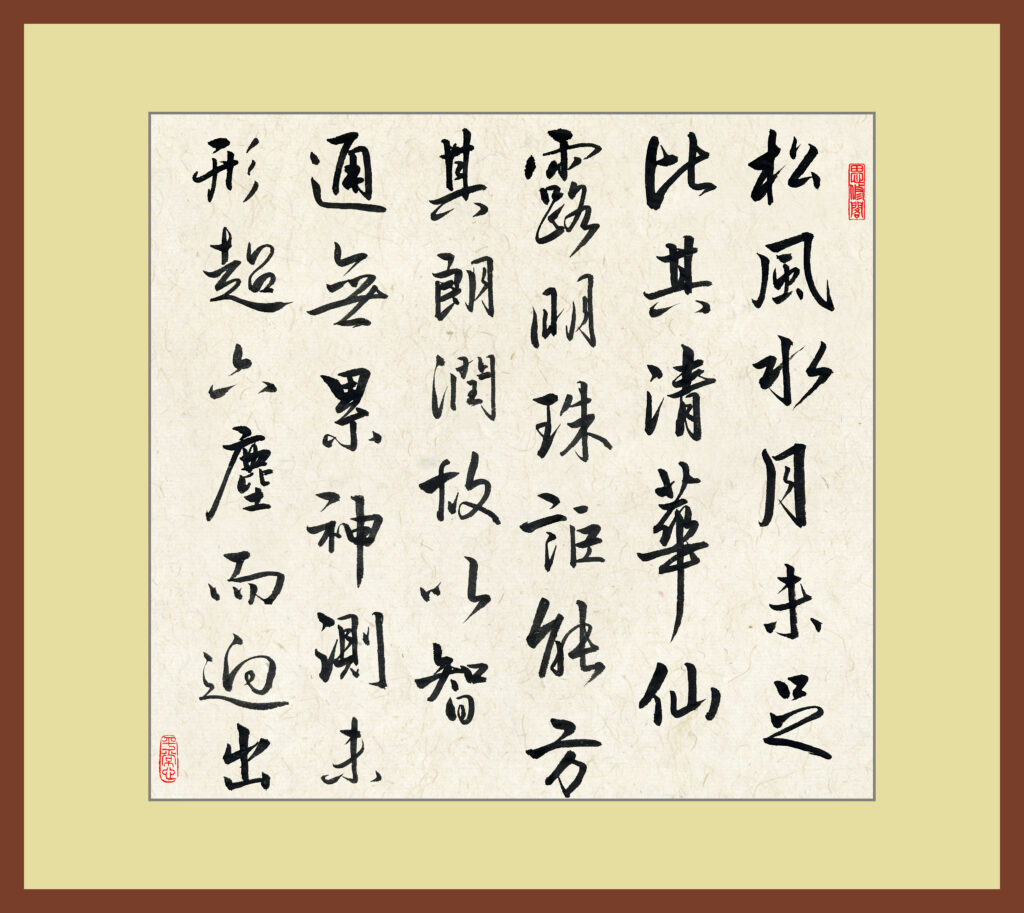 思修閣
松風水月未足
比其清華仙
露明珠詎能方
其朗潤故以智
通無累神測未
形超六塵而逈出
平常心